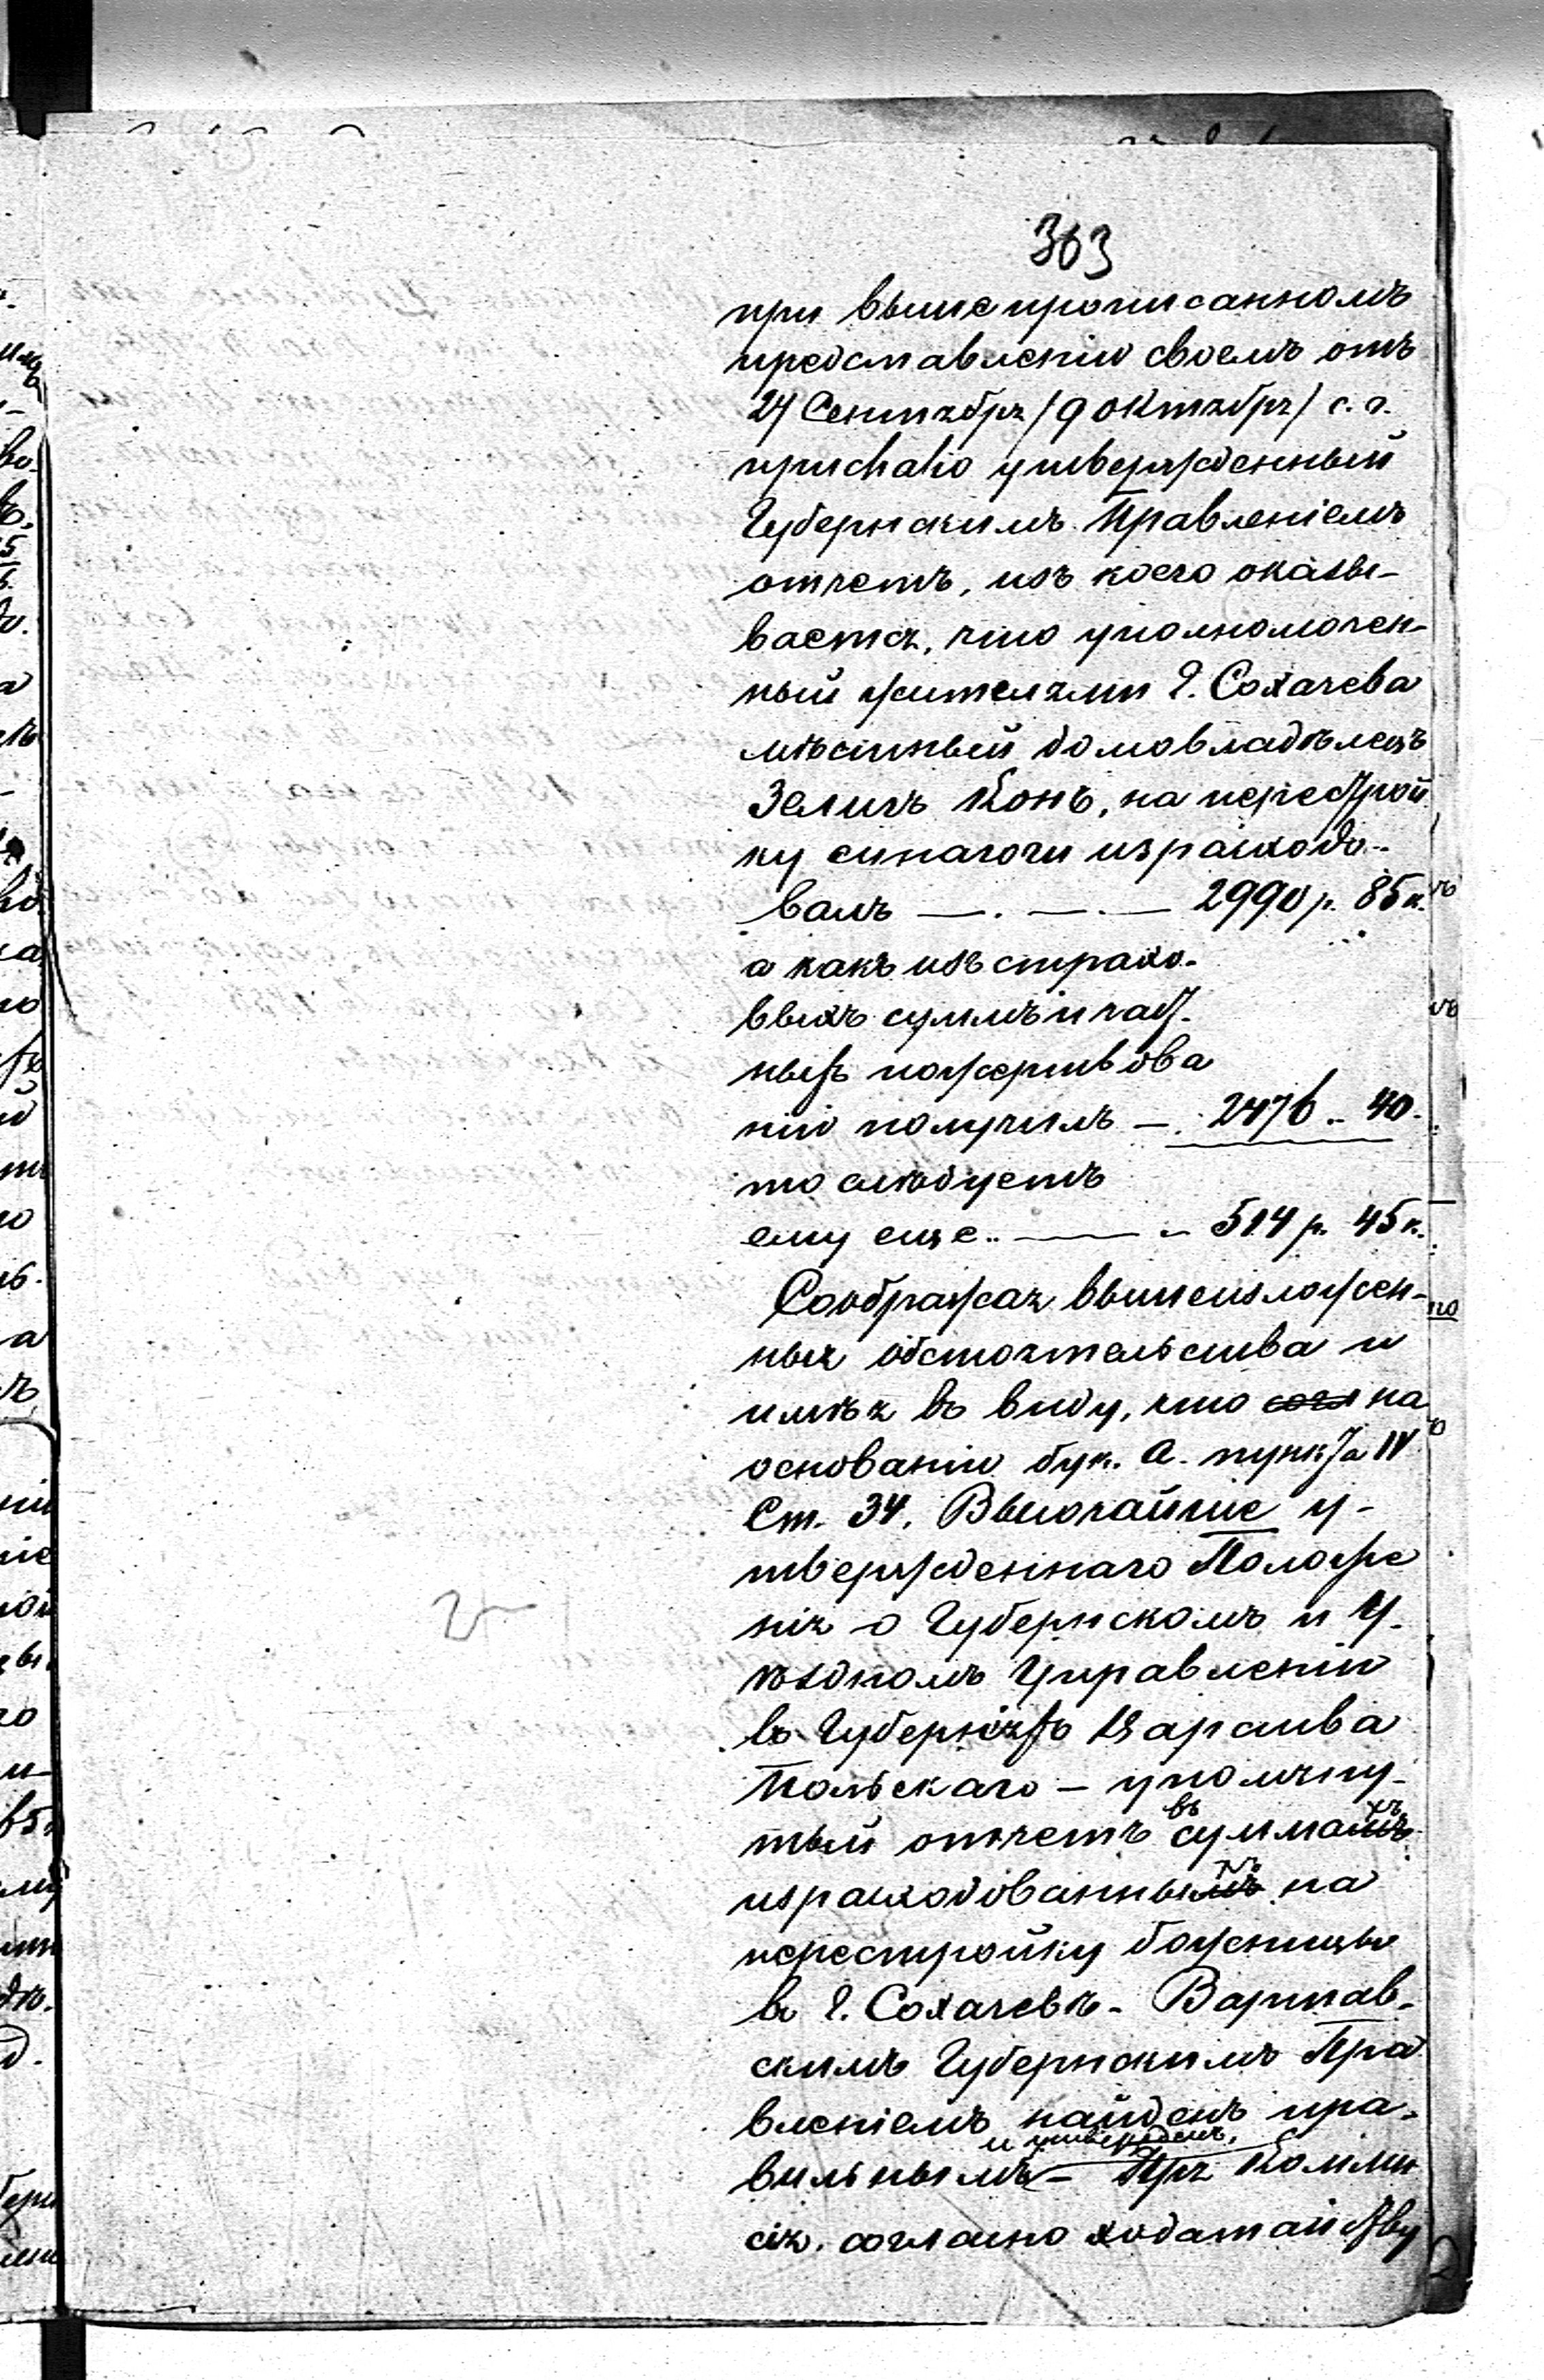 363
при вышепрописанномъ
представленіи своемъ отъ
27 Сентября /9 Октября/ с. г.
прислало утвержденный
Губернскимъ Правленіемъ
отчетъ, изъ коего оказы-
вается, что уполномочен-
ный жителями г. Сохачева
мѣстный домовладѣлецъ
Зеликъ Конъ, на перестрой
ку синагоги израсходо-
валъ — . — . — 2990 р. 85 к.
а какъ изъ страхо-
выхъ суммъ и част-
ныхъ пожертвова
ній получилъ — . 2476 .. 40.
то слѣдуетъ
ему еще .. — „ 514 р. 45 к.
Соображая вышеизложен-
ныя обстоятельства и
имѣя въ виду, что согл на
основаніи бук. а. пункта IV
Ст. 34. Высочайше у-
твержденнаго Положе
нія о Губернскомъ и У-
ѣздномъ Управленіи
въ Губерніяхъ Царства
Польскаго – упомяну-
тый отчетъ въ суммахъ
израсходованныхъ на
перестройку божницы
въ г. Сохачевѣ – Варшав-
скимъ Губернскимъ Пра
вленіемъ найденъ пра-
и утвержденъ,
вильнымъ – Пря Комми
сія. согласно ходатайству